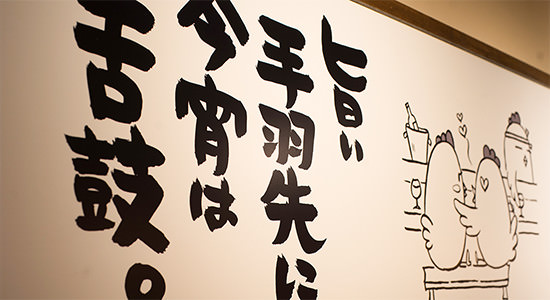 旨い
手羽先に
今宵は
舌鼓。